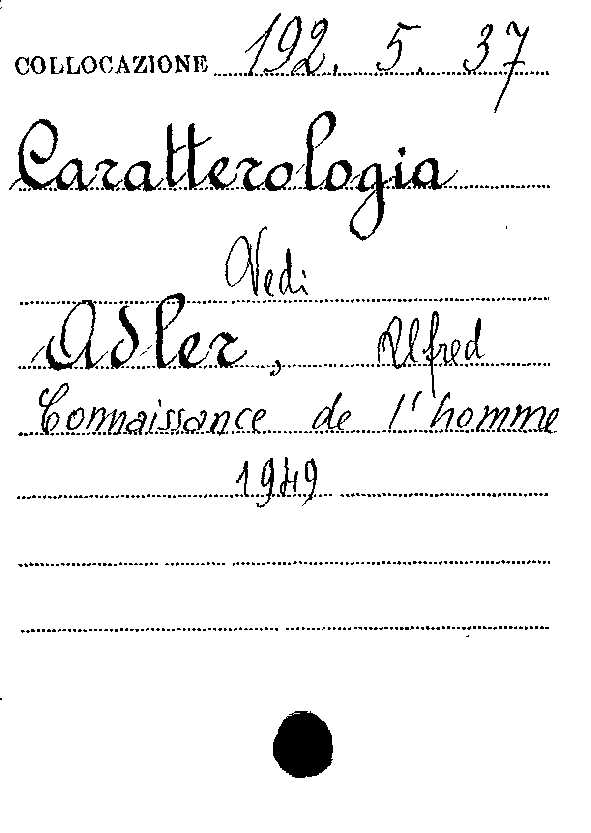 COLLOCAZIONE 192. 5. 37
Caratterologia
Vedi
Adler, Alfred
Connaissance de l'homme
1949